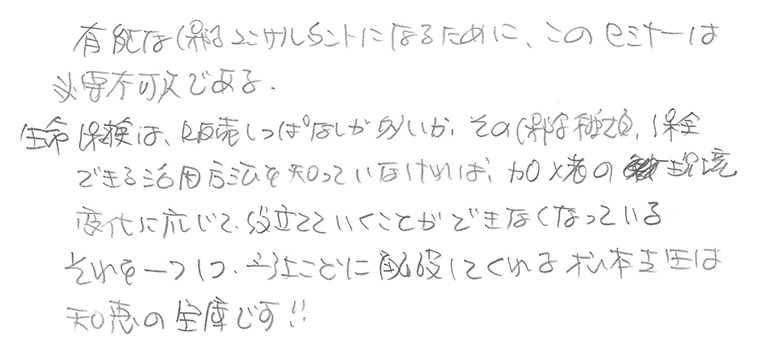 有能な保険コンサルタントになるために、このセミナーは
必要不可欠である.
生命保険は、販売しっぱなしが多いが、その保険種類、保全
できる活用方法を知っていなければ、加入者の環境
変化に応じて、役立てていくことができなくなっている
それを一つ一つ、ことに配役してくれる松本支国は
知恵の宝庫です!!